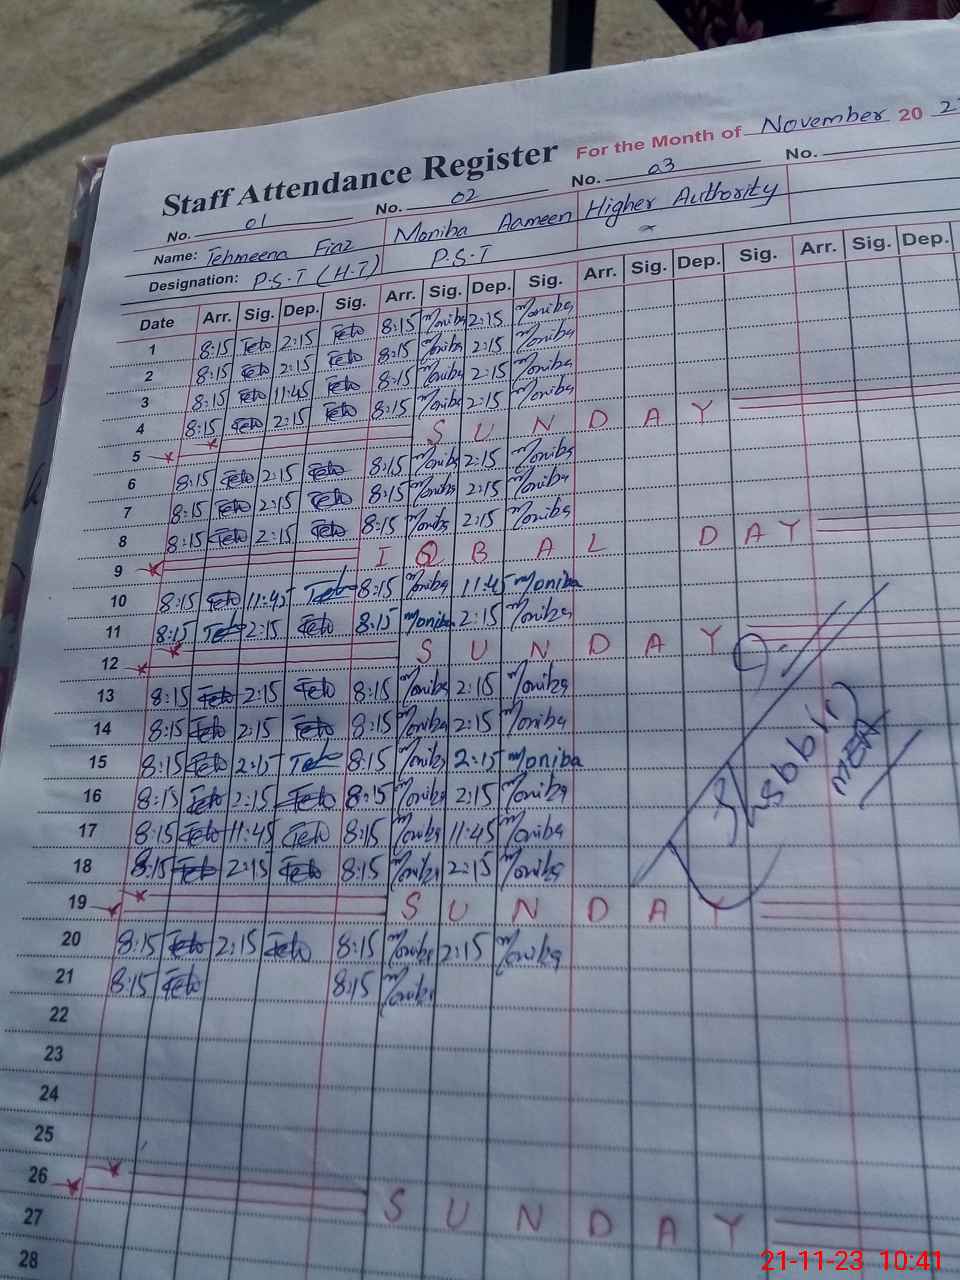 Staff Attendance Register For the Month of November 20 2
No. 01 No. 02 No. 03 No.
Name: Tehmeena Fiaz Moniba Aameen Higher Authority
Designation: P.S.T (H.T) P.S.T
Date Arr. Sig. Dep. Sig. Arr. Sig. Dep. Sig. Arr. Sig. Dep. Sig. Arr. Sig. Dep.
1 8:15 2:15 8:15 Moniba 2:15 Moniba
2 8:15 2:15 8:15 Moniba 2:15 Moniba
3 8:15 11:45 8:15 Moniba 2:15 Moniba
4 8:15 2:15 8:15 Moniba 2:15 Moniba
5 SUNDAY
6 8:15 2:15 8:15 Moniba 2:15 Moniba
7 8:15 2:15 8:15 Moniba 2:15 Moniba
8 8:15 2:15 8:15 Moniba 2:15 Moniba
9 IQBAL DAY
10 8:15 11:45 8:15 Moniba 11:45 Moniba
11 8:15 2:15 8:15 Moniba 2:15 Moniba
12 SUNDAY
13 8:15 2:15 8:15 Moniba 2:15 Moniba
14 8:15 2:15 8:15 Moniba 2:15 Moniba
15 8:15 2:15 8:15 Moniba 2:15 Moniba
16 8:15 2:15 8:15 Moniba 2:15 Moniba
17 8:15 11:45 8:15 Moniba 11:45 Moniba
18 8:15 2:15 8:15 Moniba 2:15 Moniba
19 SUNDAY
20 8:15 2:15 8:15 Moniba 2:15 Moniba
21 8:15 8:15 Moniba
22
23
24
25
26 SUNDAY
27
28
21-11-23 10:41